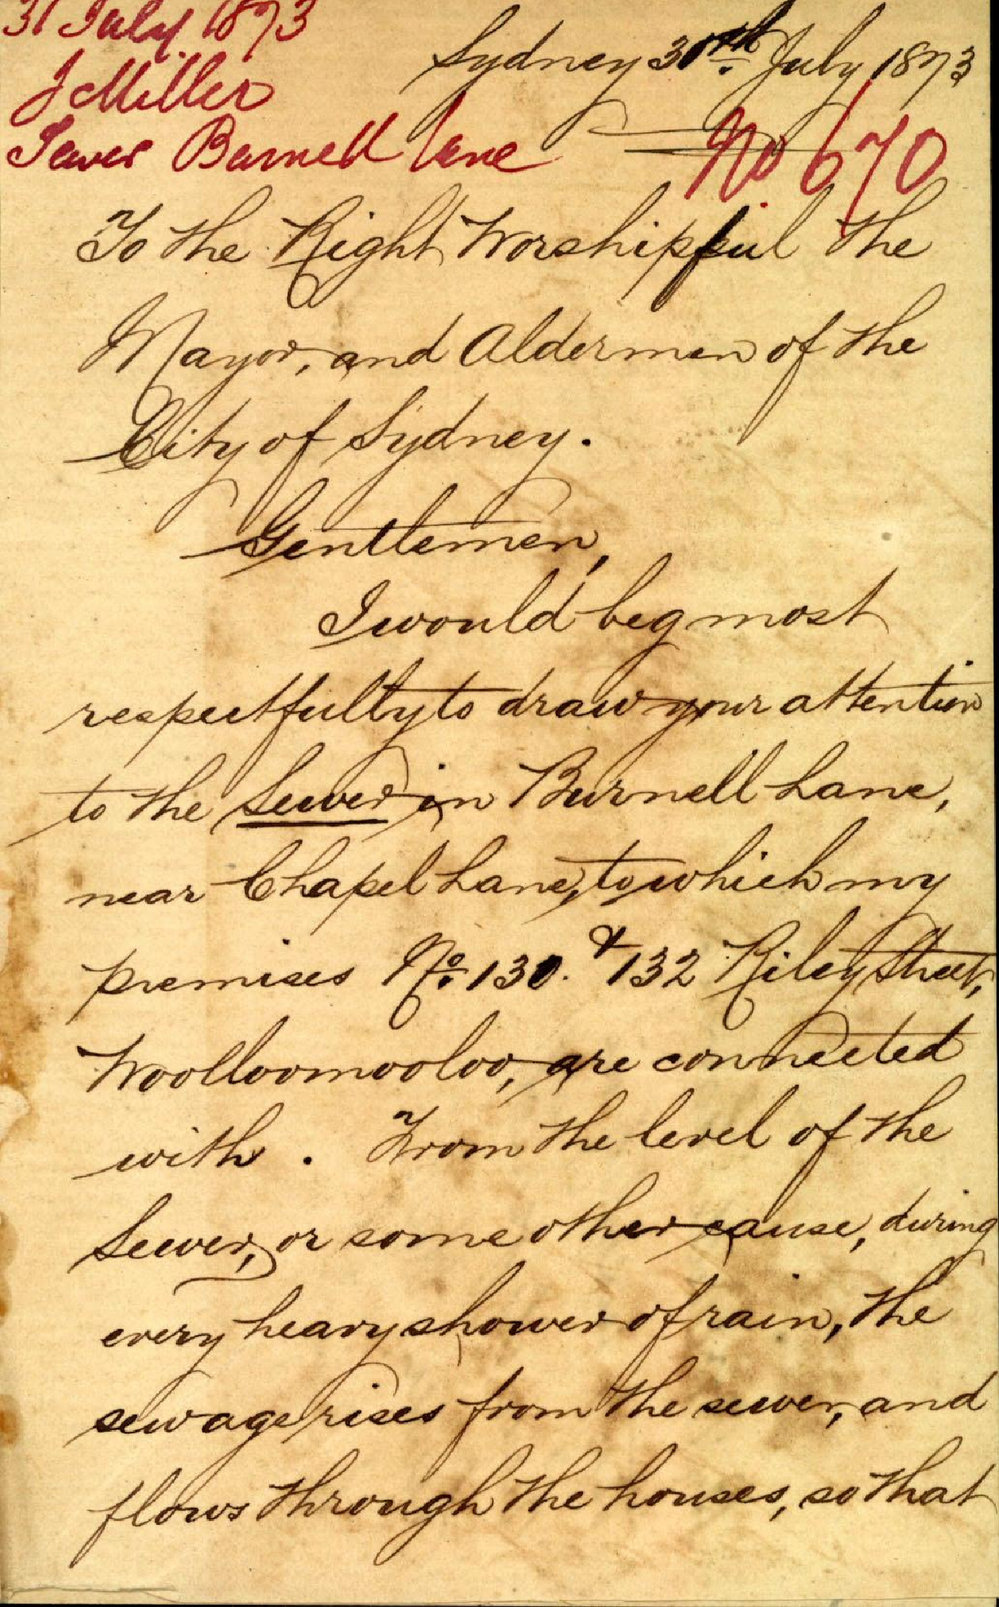 31 July 1873
J Miller
Sewer Burnell Lane
Sydney 30th. July 1873
No 670
To the Right Worshipful the
Mayor, and Aldermen of the
City of Sydney.
Gentlemen,
I would beg most
respectfully to draw your attention
to the Sewer in Burnell Lane,
near Chapel Lane, to which my
premises No. 130. & 132 Riley Street,
Woolloomooloo, are connected
with. From the level of the
Sewer, or some other cause, during
every heavy shower of rain, the
sewage rises from the sewer, and
flows through the houses, so that